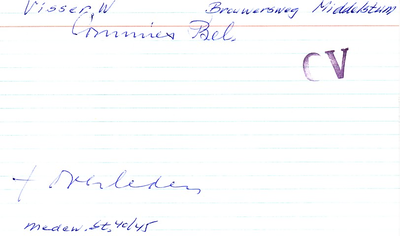 Visser, W Brouwersweg Middelstum
Commies Bel.
CV
+ Overleden
medew. St. 40/45